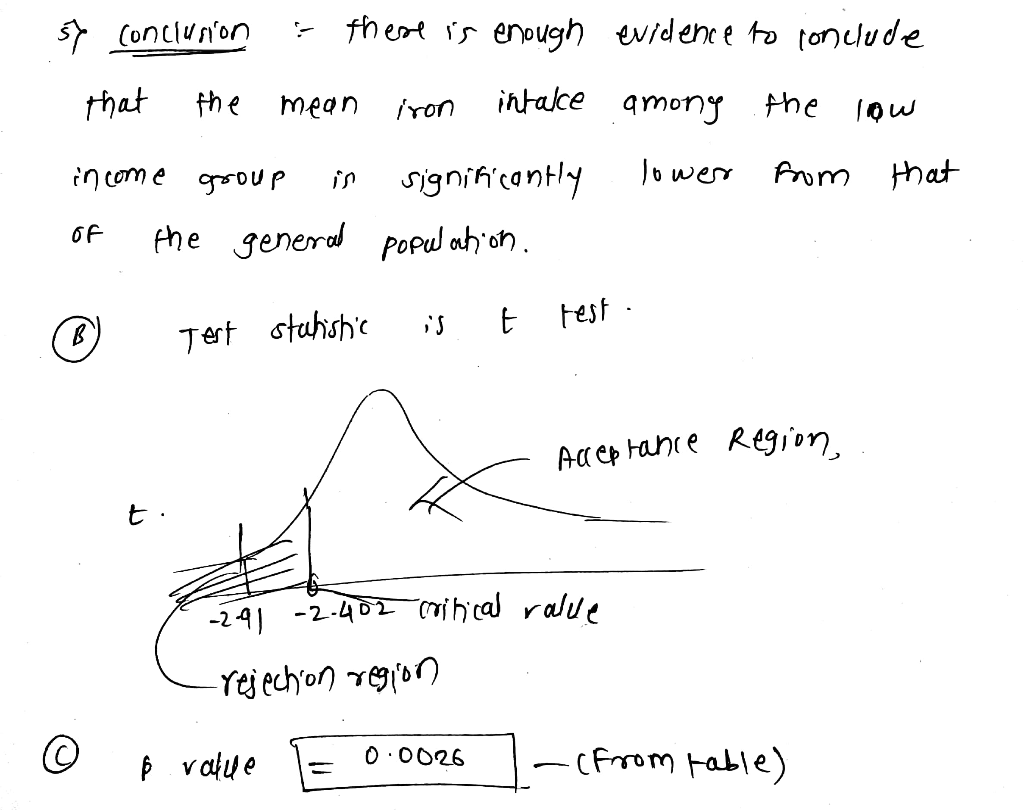 5) conclusion :- there is enough evidence to conclude
that the mean iron intake among the low
income group is significantly lower from that
of the general population.
(B) Test statistic is t test.
Acceptance Region,
t.
-2.91 -2.402 critical value
rejection region
(C) p value = 0.0026 - (From table)